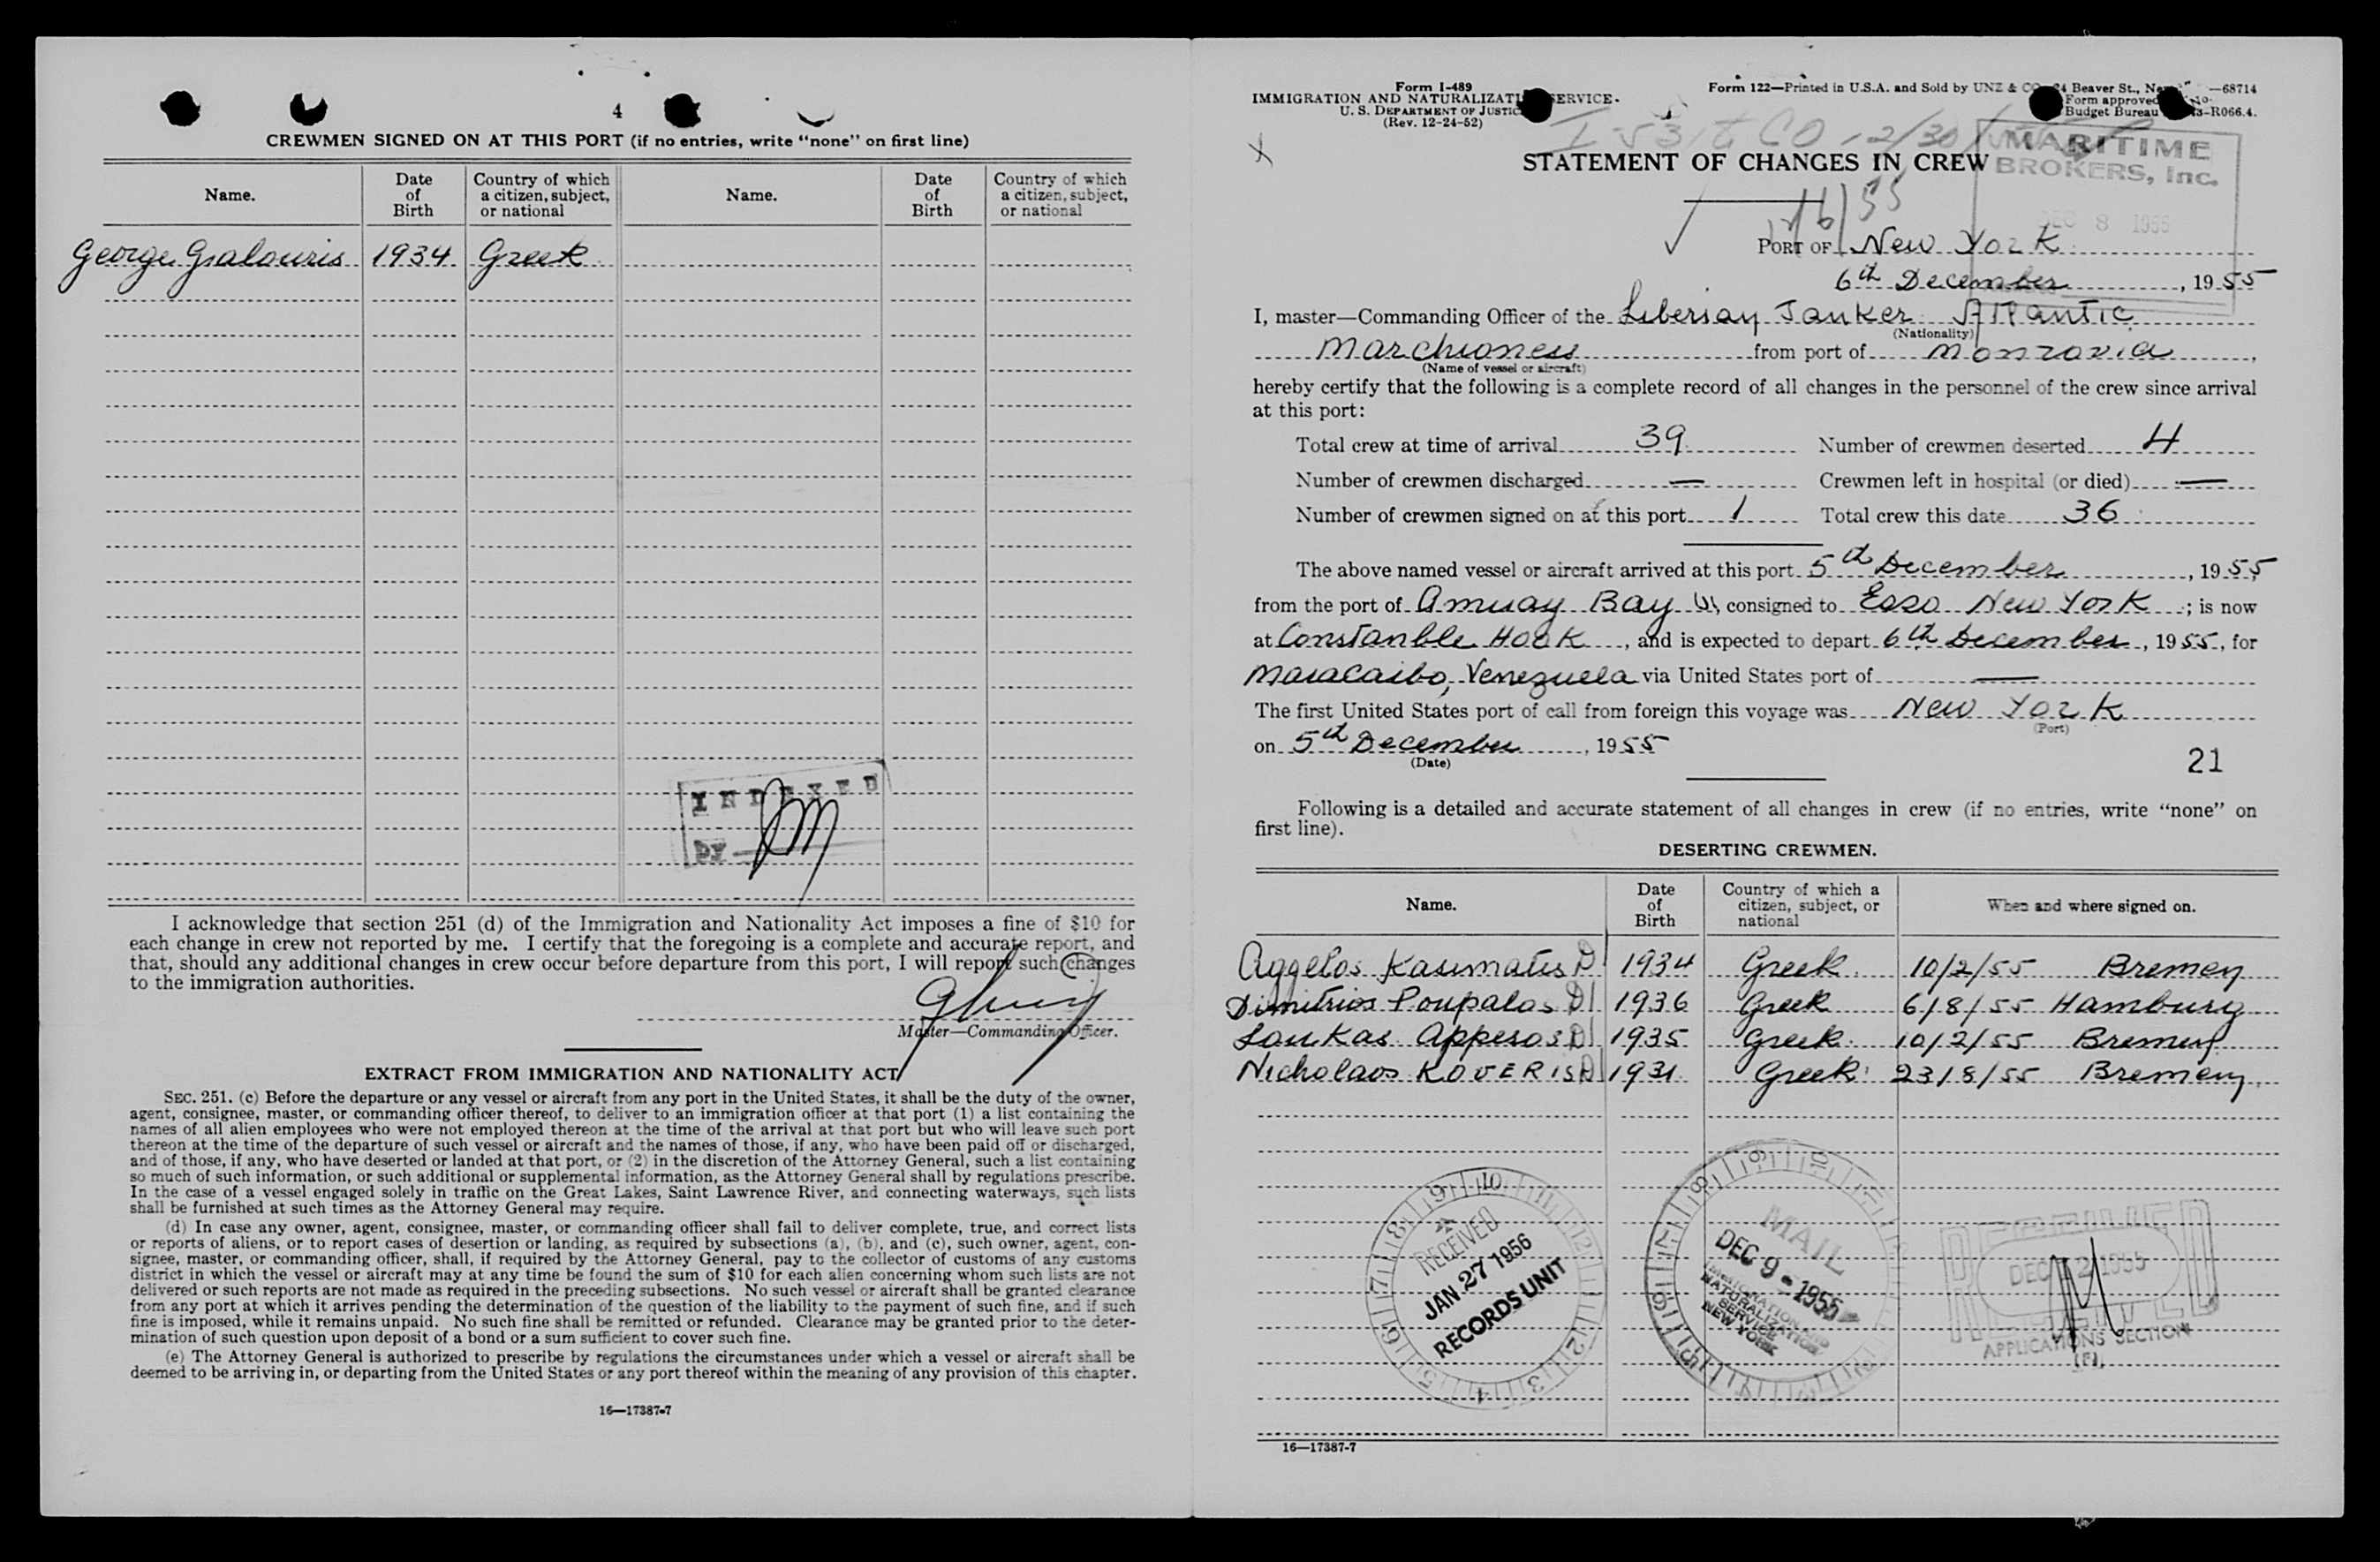 4
CREWMEN SIGNED ON AT THIS PORT (if no entries, write "none" on first line)
Name. Date of Birth Country of which a citizen, subject, or national Name. Date of Birth Country of which a citizen, subject, or national
George Gialouris 1934 Greek
INDEXED
BY
I acknowledge that section 251 (d) of the Immigration and Nationality Act imposes a fine of $10 for
each change in crew not reported by me. I certify that the foregoing is a complete and accurate report, and
that, should any additional changes in crew occur before departure from this port, I will report such changes
to the immigration authorities.
Master—Commanding Officer.
EXTRACT FROM IMMIGRATION AND NATIONALITY ACT
SEC. 251. (c) Before the departure or any vessel or aircraft from any port in the United States, it shall be the duty of the owner,
agent, consignee, master, or commanding officer thereof, to deliver to an immigration officer at that port (1) a list containing the
names of all alien employees who were not employed thereon at the time of the arrival at that port but who will leave such port
thereon at the time of the departure of such vessel or aircraft and the names of those, if any, who have been paid off or discharged,
and of those, if any, who have deserted or landed at that port, or (2) in the discretion of the Attorney General, such a list containing
so much of such information, or such additional or supplemental information, as the Attorney General shall by regulations prescribe.
In the case of a vessel engaged solely in traffic on the Great Lakes, Saint Lawrence River, and connecting waterways, such lists
shall be furnished at such times as the Attorney General may require.
(d) In case any owner, agent, consignee, master, or commanding officer shall fail to deliver complete, true, and correct lists
or reports of aliens, or to report cases of desertion or landing, as required by subsections (a), (b), and (c), such owner, agent, con-
signee, master, or commanding officer, shall, if required by the Attorney General, pay to the collector of customs of any customs
district in which the vessel or aircraft may at any time be found the sum of $10 for each alien concerning whom such lists are not
delivered or such reports are not made as required in the preceding subsections. No such vessel or aircraft shall be granted clearance
from any port at which it arrives pending the determination of the question of the liability to the payment of such fine, and if such
fine is imposed, while it remains unpaid. No such fine shall be remitted or refunded. Clearance may be granted prior to the deter-
mination of such question upon deposit of a bond or a sum sufficient to cover such fine.
(e) The Attorney General is authorized to prescribe by regulations the circumstances under which a vessel or aircraft shall be
deemed to be arriving in, or departing from the United States or any port thereof within the meaning of any provision of this chapter.
16—17387-7
Form I-489
IMMIGRATION AND NATURALIZATI SERVICE.
U. S. DEPARTMENT OF JUSTIC
(Rev. 12-24-52)
Form 122—Printed in U.S.A. and Sold by UNZ & CO 24 Beaver St., Ne —68714
Form approved
Budget Bureau -R066.4.
MARITIME
BROKERS, Inc.
DEC 8 1955
STATEMENT OF CHANGES IN CREW
PORT OF New York
6th December, 1955
I, master—Commanding Officer of the Liberian Tanker Atlantic
(Nationality)
Marchioness from port of Monrovia,
(Name of vessel or aircraft)
hereby certify that the following is a complete record of all changes in the personnel of the crew since arrival
at this port:
Total crew at time of arrival 39 Number of crewmen deserted 4
Number of crewmen discharged — Crewmen left in hospital (or died) —
Number of crewmen signed on at this port 1 Total crew this date 36
The above named vessel or aircraft arrived at this port 5th December, 1955
from the port of Amuay Bay consigned to Esso New York; is now
at Constanble Hook, and is expected to depart 6th December, 1955, for
Maracaibo, Venezuela via United States port of —
The first United States port of call from foreign this voyage was New York
(Port)
on 5th December, 1955
(Date)
21
Following is a detailed and accurate statement of all changes in crew (if no entries, write "none" on
first line).
DESERTING CREWMEN.
Name. Date of Birth Country of which a citizen, subject, or national When and where signed on.
Aggelos Kasimatis D 1934 Greek 10/2/55 Bremen
Dimitrios Poupalos D 1936 Greek 6/8/55 Hamburg
Loukas Appesos D 1935 Greek 10/2/55 Bremen
Nicholaos KOVERIS D 1931 Greek 23/8/55 Bremen
RECEIVED
JAN 27 1956
RECORDS UNIT
MAIL
DEC 9 - 1955
IMMIGRATION AND
NATURALIZATION
SERVICE
NEW YORK
DEC 12 1955
APPLICATIONS SECTION
16—17387-7